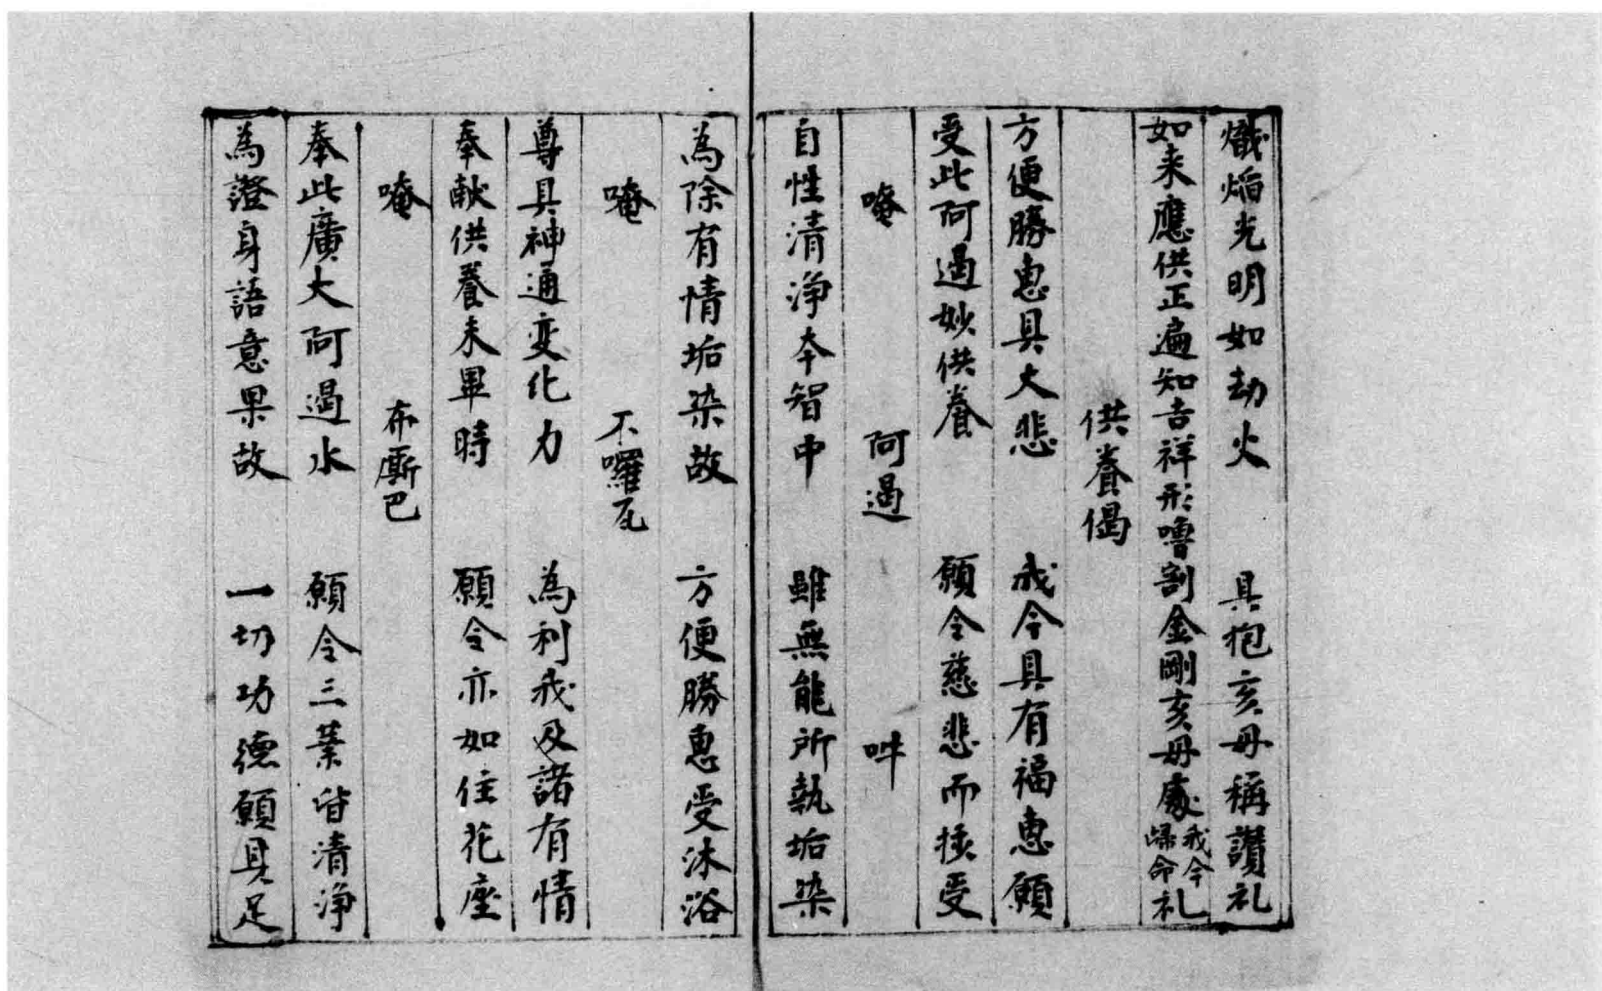 熾焔光明如劫火　具抱亥母稱讃礼
如来應供正遍知吉祥形嚕割金剛亥母處我今歸命礼
供養偈
方便勝惠具大悲　我今具有福惠願
受此阿遏妙供養　願令慈悲而攝受
唵　阿遏　吽
自性清淨本智中　雖無能所執垢染
為除有情垢染故　方便勝惠受沐浴
唵　不囉瓦
尊具神通変化力　為利我及諸有情
奉献供養未畢時　願令亦如住花座
唵　布廝巴
奉此廣大阿遏水　願令三業皆清淨
為證身語意果故　一切功德願具足